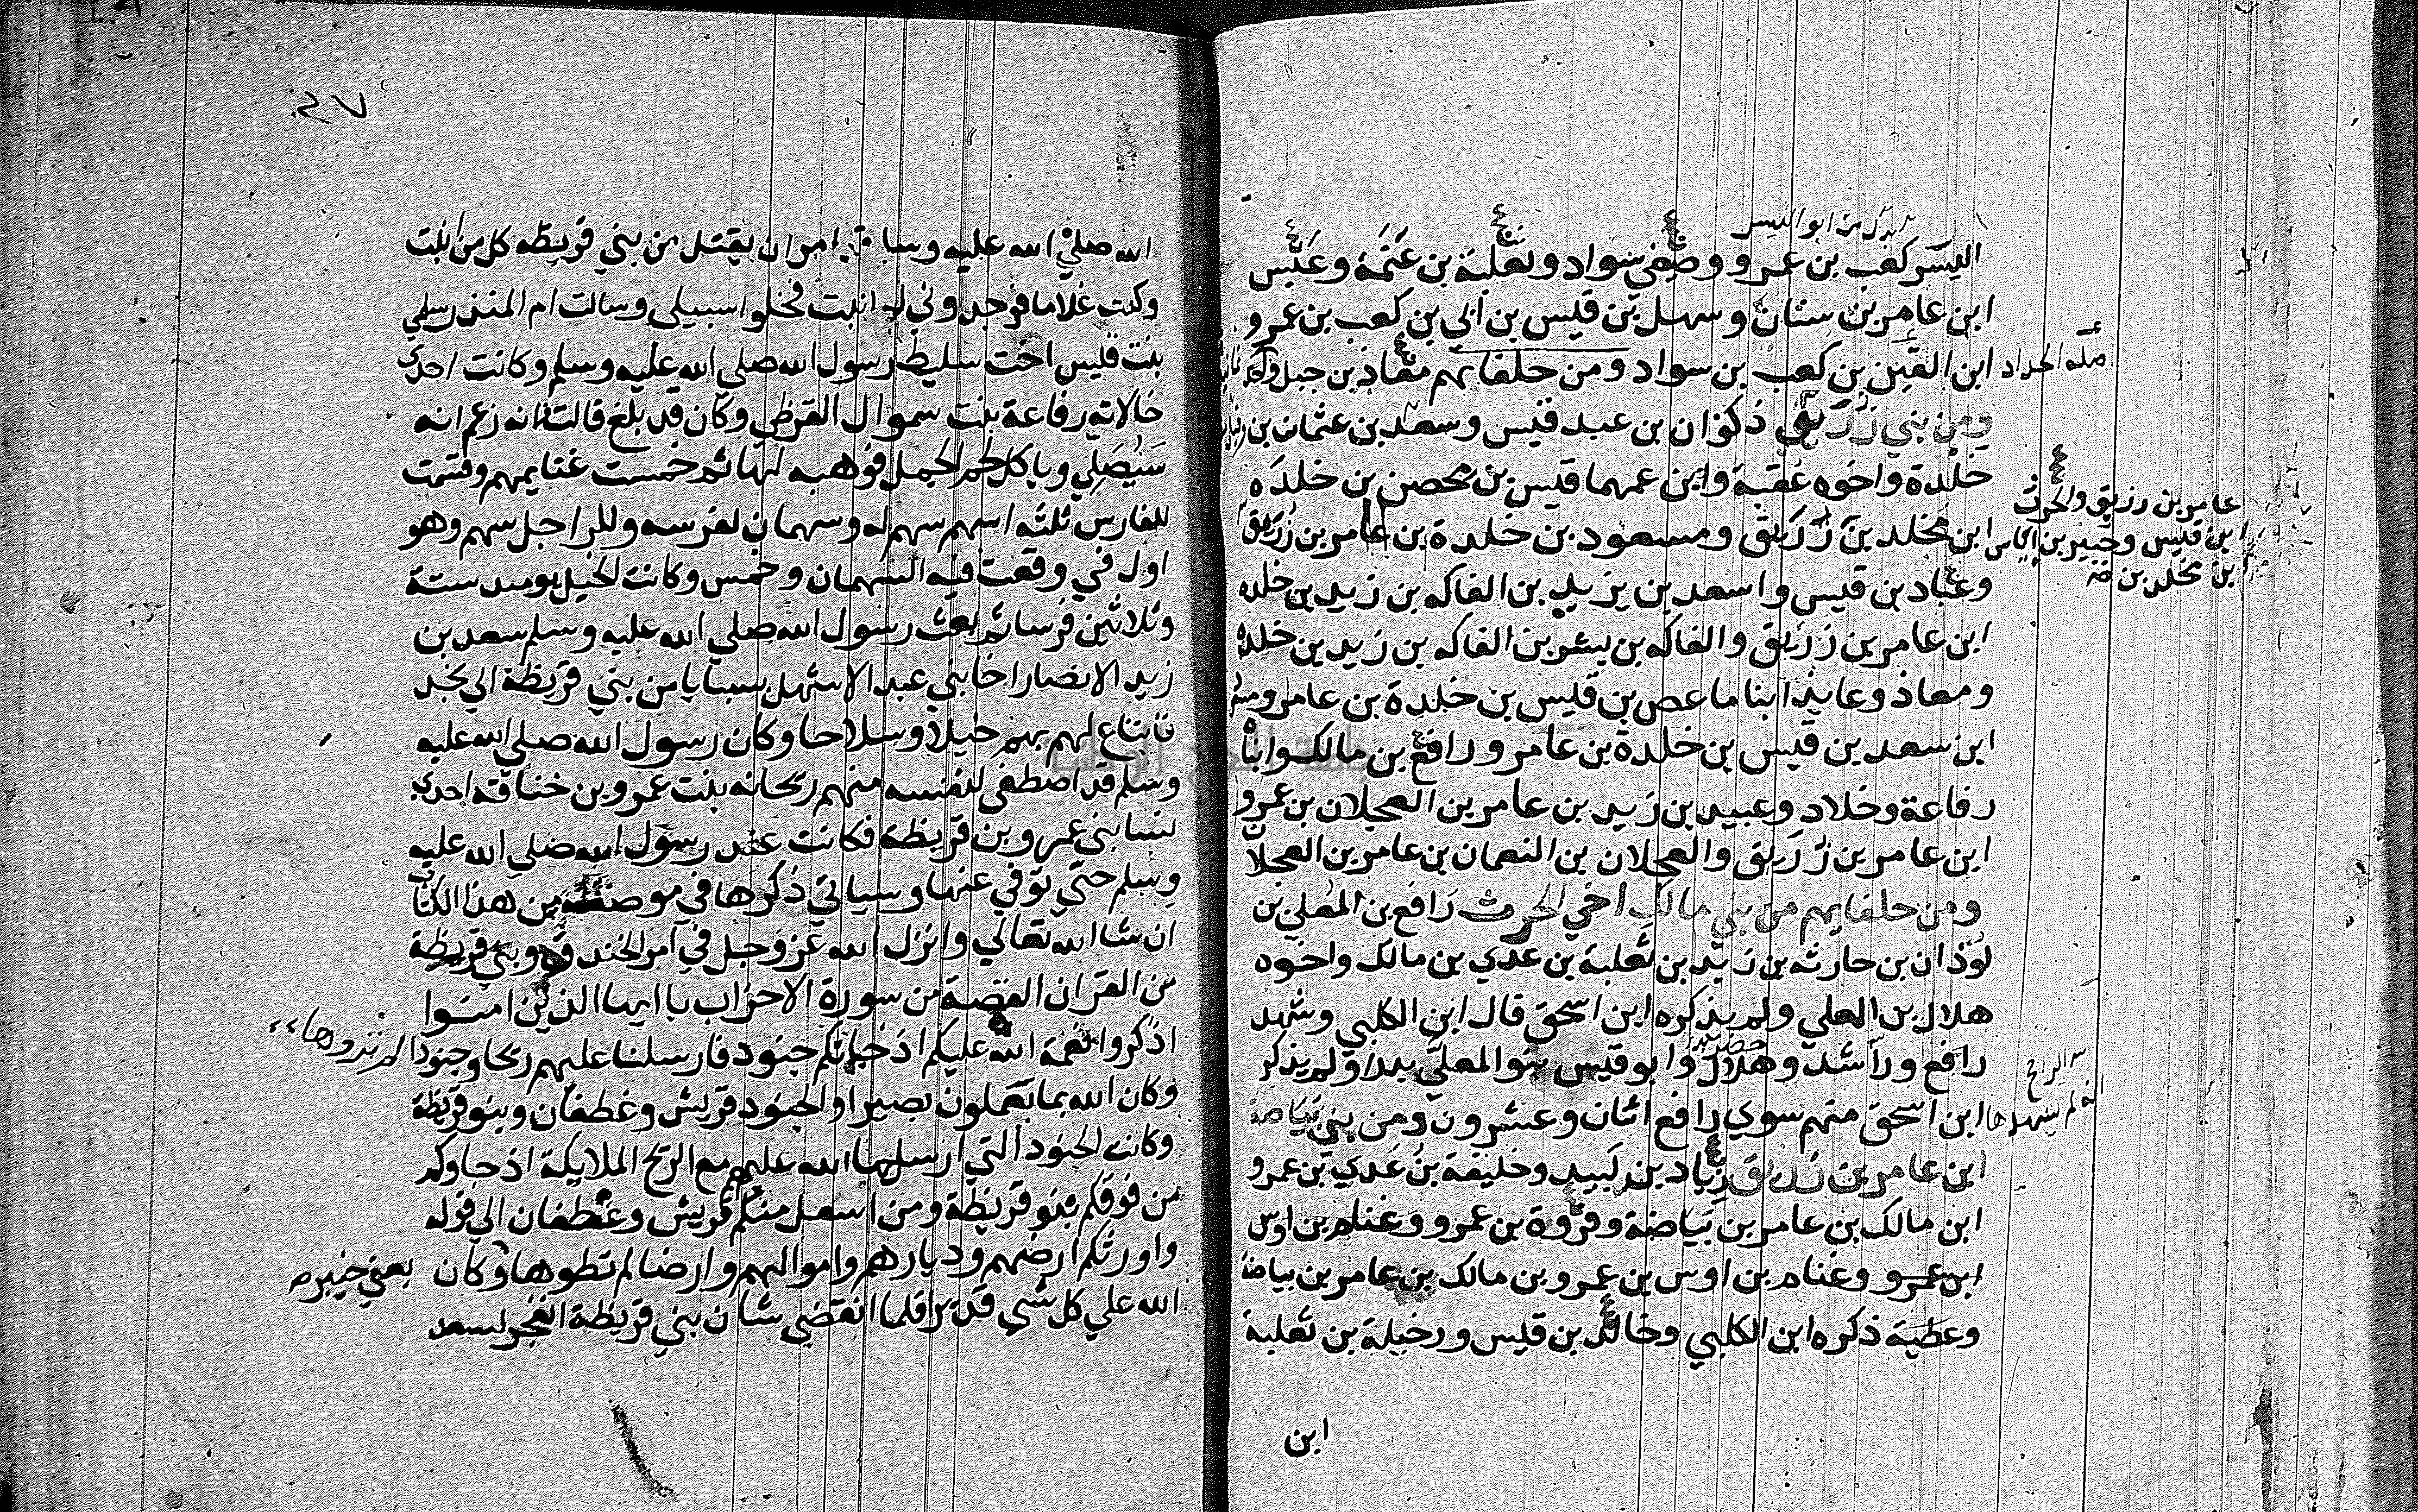 اليسر كعب بن عمرو وصيفي سواد وثعلبة بن عَنَمَة وعَبْس
ابن عامر بن سنان وسهل بن قيس بن ابي بن كعب بن عمرو
ابن القين بن كعب بن سواد ومن حلفايهم معاذ بن جبل
ومن بني زُرَيق ذكوان بن عبد قيس وسعد بن عثمان بن
خلدة واخوه عُقبة وابن عمهما قيس بن محصن بن خلدَه
ابن مخلد بن زُرَيق ومسعود بن خلدة بن عامر بن زُرَيق
عامر بن زريق والحرث
ابن قيس وجبير بن اياس
بن مخلد بن
وعباد بن قيس واسعد بن يزيد بن الفاكه بن زيد بن خلده
ابن عامر بن زُرَيق والفاكه بن بشر بن الفاكه بن زيد بن خلده
ومعاذ وعايذ ابنا ماعص بن قيس بن خلدة بن عامر
ابن سعد بن قيس بن خلدة بن عامر ورافع بن مالك وابناه
رفاعة وخلاد وعبيد بن زيد بن عامر بن العجلان بن عمرو
ابن عامر بن زُرَيق والعجلان بن النعمان بن عامر بن العجلان
ومن حلفايهم من بني مالك اخي الحرث رَافع بن المُعلي بن
لوذان بن حارثه بن زيد بن ثعلبة بن عدي بن مالك واخوه
هلال بن المعلي ولم يذكره ابن اسحق قال ابن الكلبي وشهد
رافع وراشد وهلال وابو قيس بنو المعلَّي بدرا ولم يذكر
ابن اسحق منهم سوي رافع اثنان وعشرون ومن بني بَيَاضة
ابن عامر بن زُرَيق زياد بن لَبيد وخليفة بن عَدي بن عمرو
ابن مالك بن عامر بن بَيَاضة وفروة بن عمرو وغنام بن اوس
ابن عمرو وغنام بن اوس بن عمرو بن مالك بن عامر بن بياضة
وعطية ذكره ابن الكلبي وخالد بن قيس ورخيلة بن ثعلبة
ابن
الله صلي الله عليه وسلم امر ان يقتل من بني قريظه كل من انبت
وكنت غلاما فوجدوني لم انبت فخلوا سبيلي وسالت ام المنذر سلمي
بنت قيس اخت سليط رسول الله صلي الله عليه وسلم وكانت احدي
خالاته رفاعة بنت سموال القرظي وكان قد بلغ قالت فانه زعم انه
سَيُصَلِي وياكل لحم الجمل فوهبه لها ثم خمست غنايمهم وقسمت
للفارس ثلثه اسهم سهم له وسهمان لفرسه وللراجل سهم وهو
اول في وقعت فيه السهمان وخمس وكانت الخيل يوميد ستة
وثلاثين فرسا ثم بعث رسول الله صلي الله عليه وسلم سعد بن
زيد الانصار اخا بني عبد الاشهل بسبايا من بني قريظة الي نجد
فابتاع لهم بهم خيلا وسلاحا وكان رسول الله صلي الله عليه
وسلم قد اصطفي لنفسه منهم ريحانه بنت عمرو بن خنافة احدي
نسا بني عمرو بن قريظة فكانت عند رسول الله صلي الله عليه
وسلم حتي توفي عنها وسياتي ذكرها في موضعه من هذا الكتاب
ان شا الله تعالي وانزل الله عز وجل في امر الخندق وبني قريظة
من القران القصة من سورة الاحزاب يا ايها الذين امنوا
اذكروا نعمة الله عليكم اذ جاتكم جنود فارسلنا عليهم ريحا وجنودا لم تروها
وكان الله بما تعملون بصيرا والجنود قريش وغطفان وبنو قريظة
وكانت الجنود التي ارسلها الله عليهم مع الريح الملايكة اذ جاوكم
من فوقكم بنو قريظة ومن اسفل منكم قريش وغطفان الي قوله
واورثكم ارضهم وديارهم واموالهم وارضا لم تطوها وكان يعني خيبر
الله علي كل شي قديرا فلما انقضي شان بني قريظة انفجر لسعد